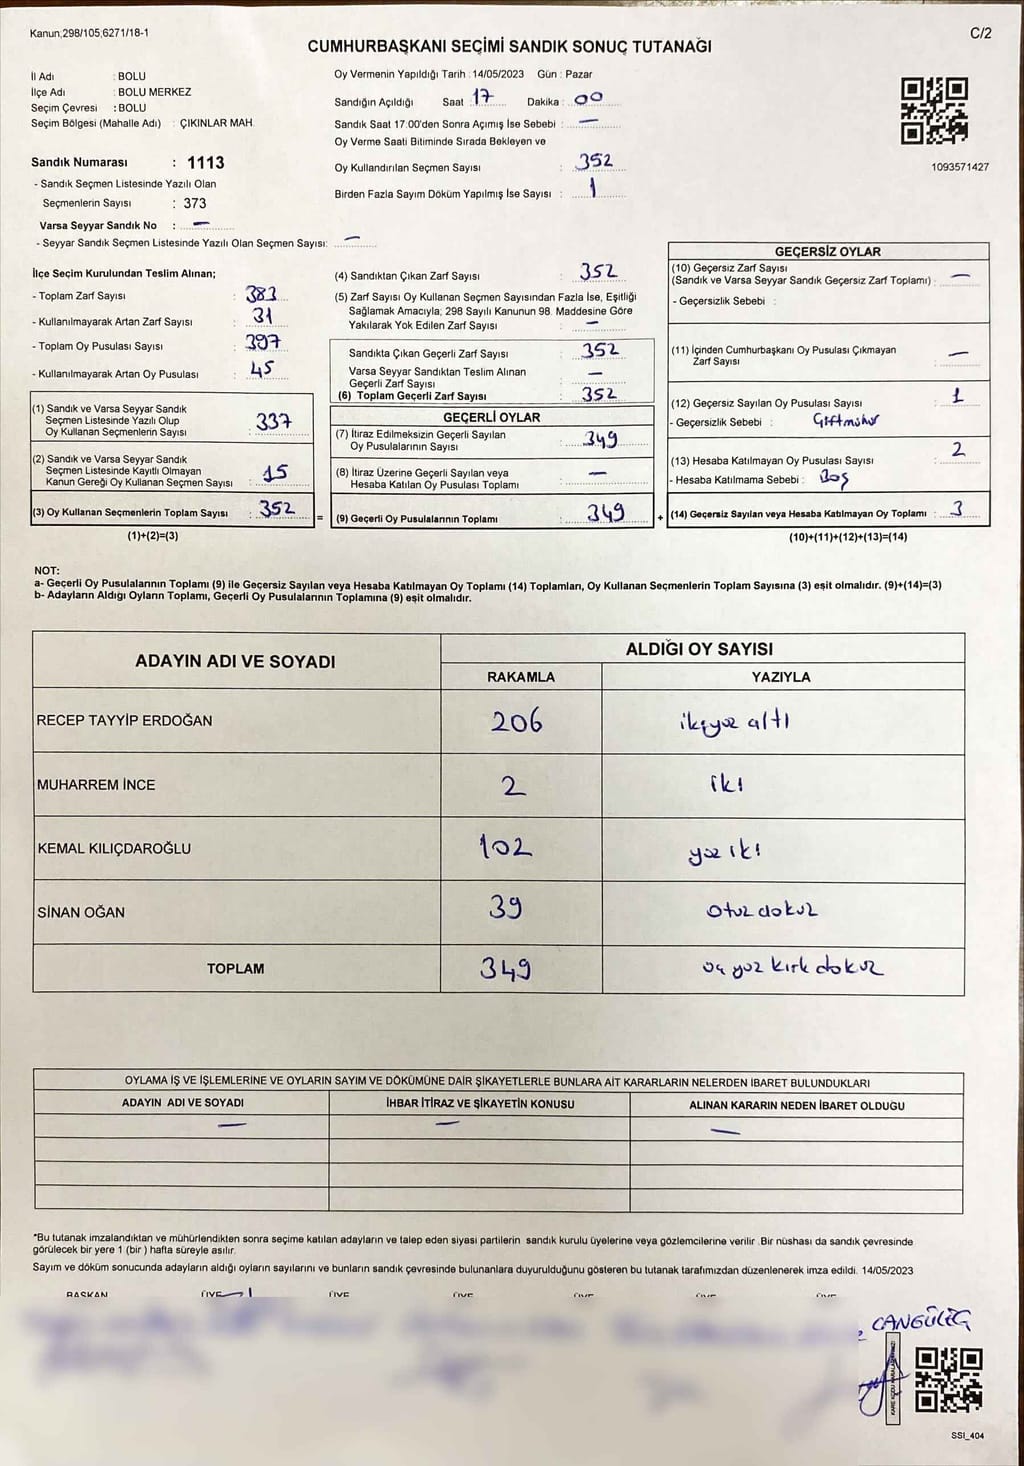 Kanun,298/105,6271/18-1
C/2
CUMHURBAŞKANI SEÇİMİ SANDIK SONUÇ TUTANAĞI
İl Adı : BOLU
İlçe Adı : BOLU MERKEZ
Seçim Çevresi : BOLU
Seçim Bölgesi (Mahalle Adı) : ÇIKINLAR MAH.
Sandık Numarası : 1113
- Sandık Seçmen Listesinde Yazılı Olan
Seçmenlerin Sayısı : 373
Varsa Seyyar Sandık No : —
- Seyyar Sandık Seçmen Listesinde Yazılı Olan Seçmen Sayısı: —
Oy Vermenin Yapıldığı Tarih : 14/05/2023 Gün : Pazar
Sandığın Açıldığı Saat : 17 Dakika : 00
Sandık Saat 17:00'den Sonra Açımış İse Sebebi : —
Oy Verme Saati Bitiminde Sırada Bekleyen ve
Oy Kullandırılan Seçmen Sayısı : 352
Birden Fazla Sayım Döküm Yapılmış İse Sayısı : 1
1093571427
İlçe Seçim Kurulundan Teslim Alınan;
- Toplam Zarf Sayısı : 383
- Kullanılmayarak Artan Zarf Sayısı : 31
- Toplam Oy Pusulası Sayısı : 397
- Kullanılmayarak Artan Oy Pusulası : 45
(1) Sandık ve Varsa Seyyar Sandık
Seçmen Listesinde Yazılı Olup
Oy Kullanan Seçmenlerin Sayısı : 337
(2) Sandık ve Varsa Seyyar Sandık
Seçmen Listesinde Kayıtlı Olmayan
Kanun Gereği Oy Kullanan Seçmen Sayısı : 15
(3) Oy Kullanan Seçmenlerin Toplam Sayısı : 352 =
(1)+(2)=(3)
(4) Sandıktan Çıkan Zarf Sayısı : 352
(5) Zarf Sayısı Oy Kullanan Seçmen Sayısından Fazla İse, Eşitliği
Sağlamak Amacıyla; 298 Sayılı Kanunun 98. Maddesine Göre
Yakılarak Yok Edilen Zarf Sayısı : —
Sandıkta Çıkan Geçerli Zarf Sayısı : 352
Varsa Seyyar Sandıktan Teslim Alınan
Geçerli Zarf Sayısı : —
(6) Toplam Geçerli Zarf Sayısı : 352
GEÇERLİ OYLAR
(7) İtiraz Edilmeksizin Geçerli Sayılan
Oy Pusulalarının Sayısı : 349
(8) İtiraz Üzerine Geçerli Sayılan veya
Hesaba Katılan Oy Pusulası Toplamı : —
(9) Geçerli Oy Pusulalarının Toplamı : 349 +
GEÇERSİZ OYLAR
(10) Geçersiz Zarf Sayısı
(Sandık ve Varsa Seyyar Sandık Geçersiz Zarf Toplamı) : —
- Geçersizlik Sebebi :
(11) İçinden Cumhurbaşkanı Oy Pusulası Çıkmayan
Zarf Sayısı : —
(12) Geçersiz Sayılan Oy Pusulası Sayısı : 1
- Geçersizlik Sebebi : Çift mühür
(13) Hesaba Katılmayan Oy Pusulası Sayısı : 2
- Hesaba Katılmama Sebebi : Boş
(14) Geçersiz Sayılan veya Hesaba Katılmayan Oy Toplamı : 3
(10)+(11)+(12)+(13)=(14)
NOT:
a- Geçerli Oy Pusulalarının Toplamı (9) ile Geçersiz Sayılan veya Hesaba Katılmayan Oy Toplamı (14) Toplamları, Oy Kullanan Seçmenlerin Toplam Sayısına (3) eşit olmalıdır. (9)+(14)=(3)
b- Adayların Aldığı Oyların Toplamı, Geçerli Oy Pusulalarının Toplamına (9) eşit olmalıdır.
ADAYIN ADI VE SOYADI
ALDIĞI OY SAYISI
RAKAMLA YAZIYLA
RECEP TAYYİP ERDOĞAN 206 ikiyüz altı
MUHARREM İNCE 2 iki
KEMAL KILIÇDAROĞLU 102 yüz iki
SİNAN OĞAN 39 otuz dokuz
TOPLAM 349 üç yüz kırk dokuz
OYLAMA İŞ VE İŞLEMLERİNE VE OYLARIN SAYIM VE DÖKÜMÜNE DAİR ŞİKAYETLERLE BUNLARA AİT KARARLARIN NELERDEN İBARET BULUNDUKLARI
ADAYIN ADI VE SOYADI İHBAR İTİRAZ VE ŞİKAYETİN KONUSU ALINAN KARARIN NEDEN İBARET OLDUĞU
— — —
*Bu tutanak imzalandıktan ve mühürlendikten sonra seçime katılan adayların ve talep eden siyasi partilerin sandık kurulu üyelerine veya gözlemcilerine verilir .Bir nüshası da sandık çevresinde
görülecek bir yere 1 (bir ) hafta süreyle asılır.
Sayım ve döküm sonucunda adayların aldığı oyların sayılarını ve bunların sandık çevresinde bulunanlara duyurulduğunu gösteren bu tutanak tarafımızdan düzenlenerek imza edildi. 14/05/2023
BAŞKAN ÜYE ÜYE ÜYE ÜYE ÜYE ÜYE
CANGÜLEÇ
SSI_404